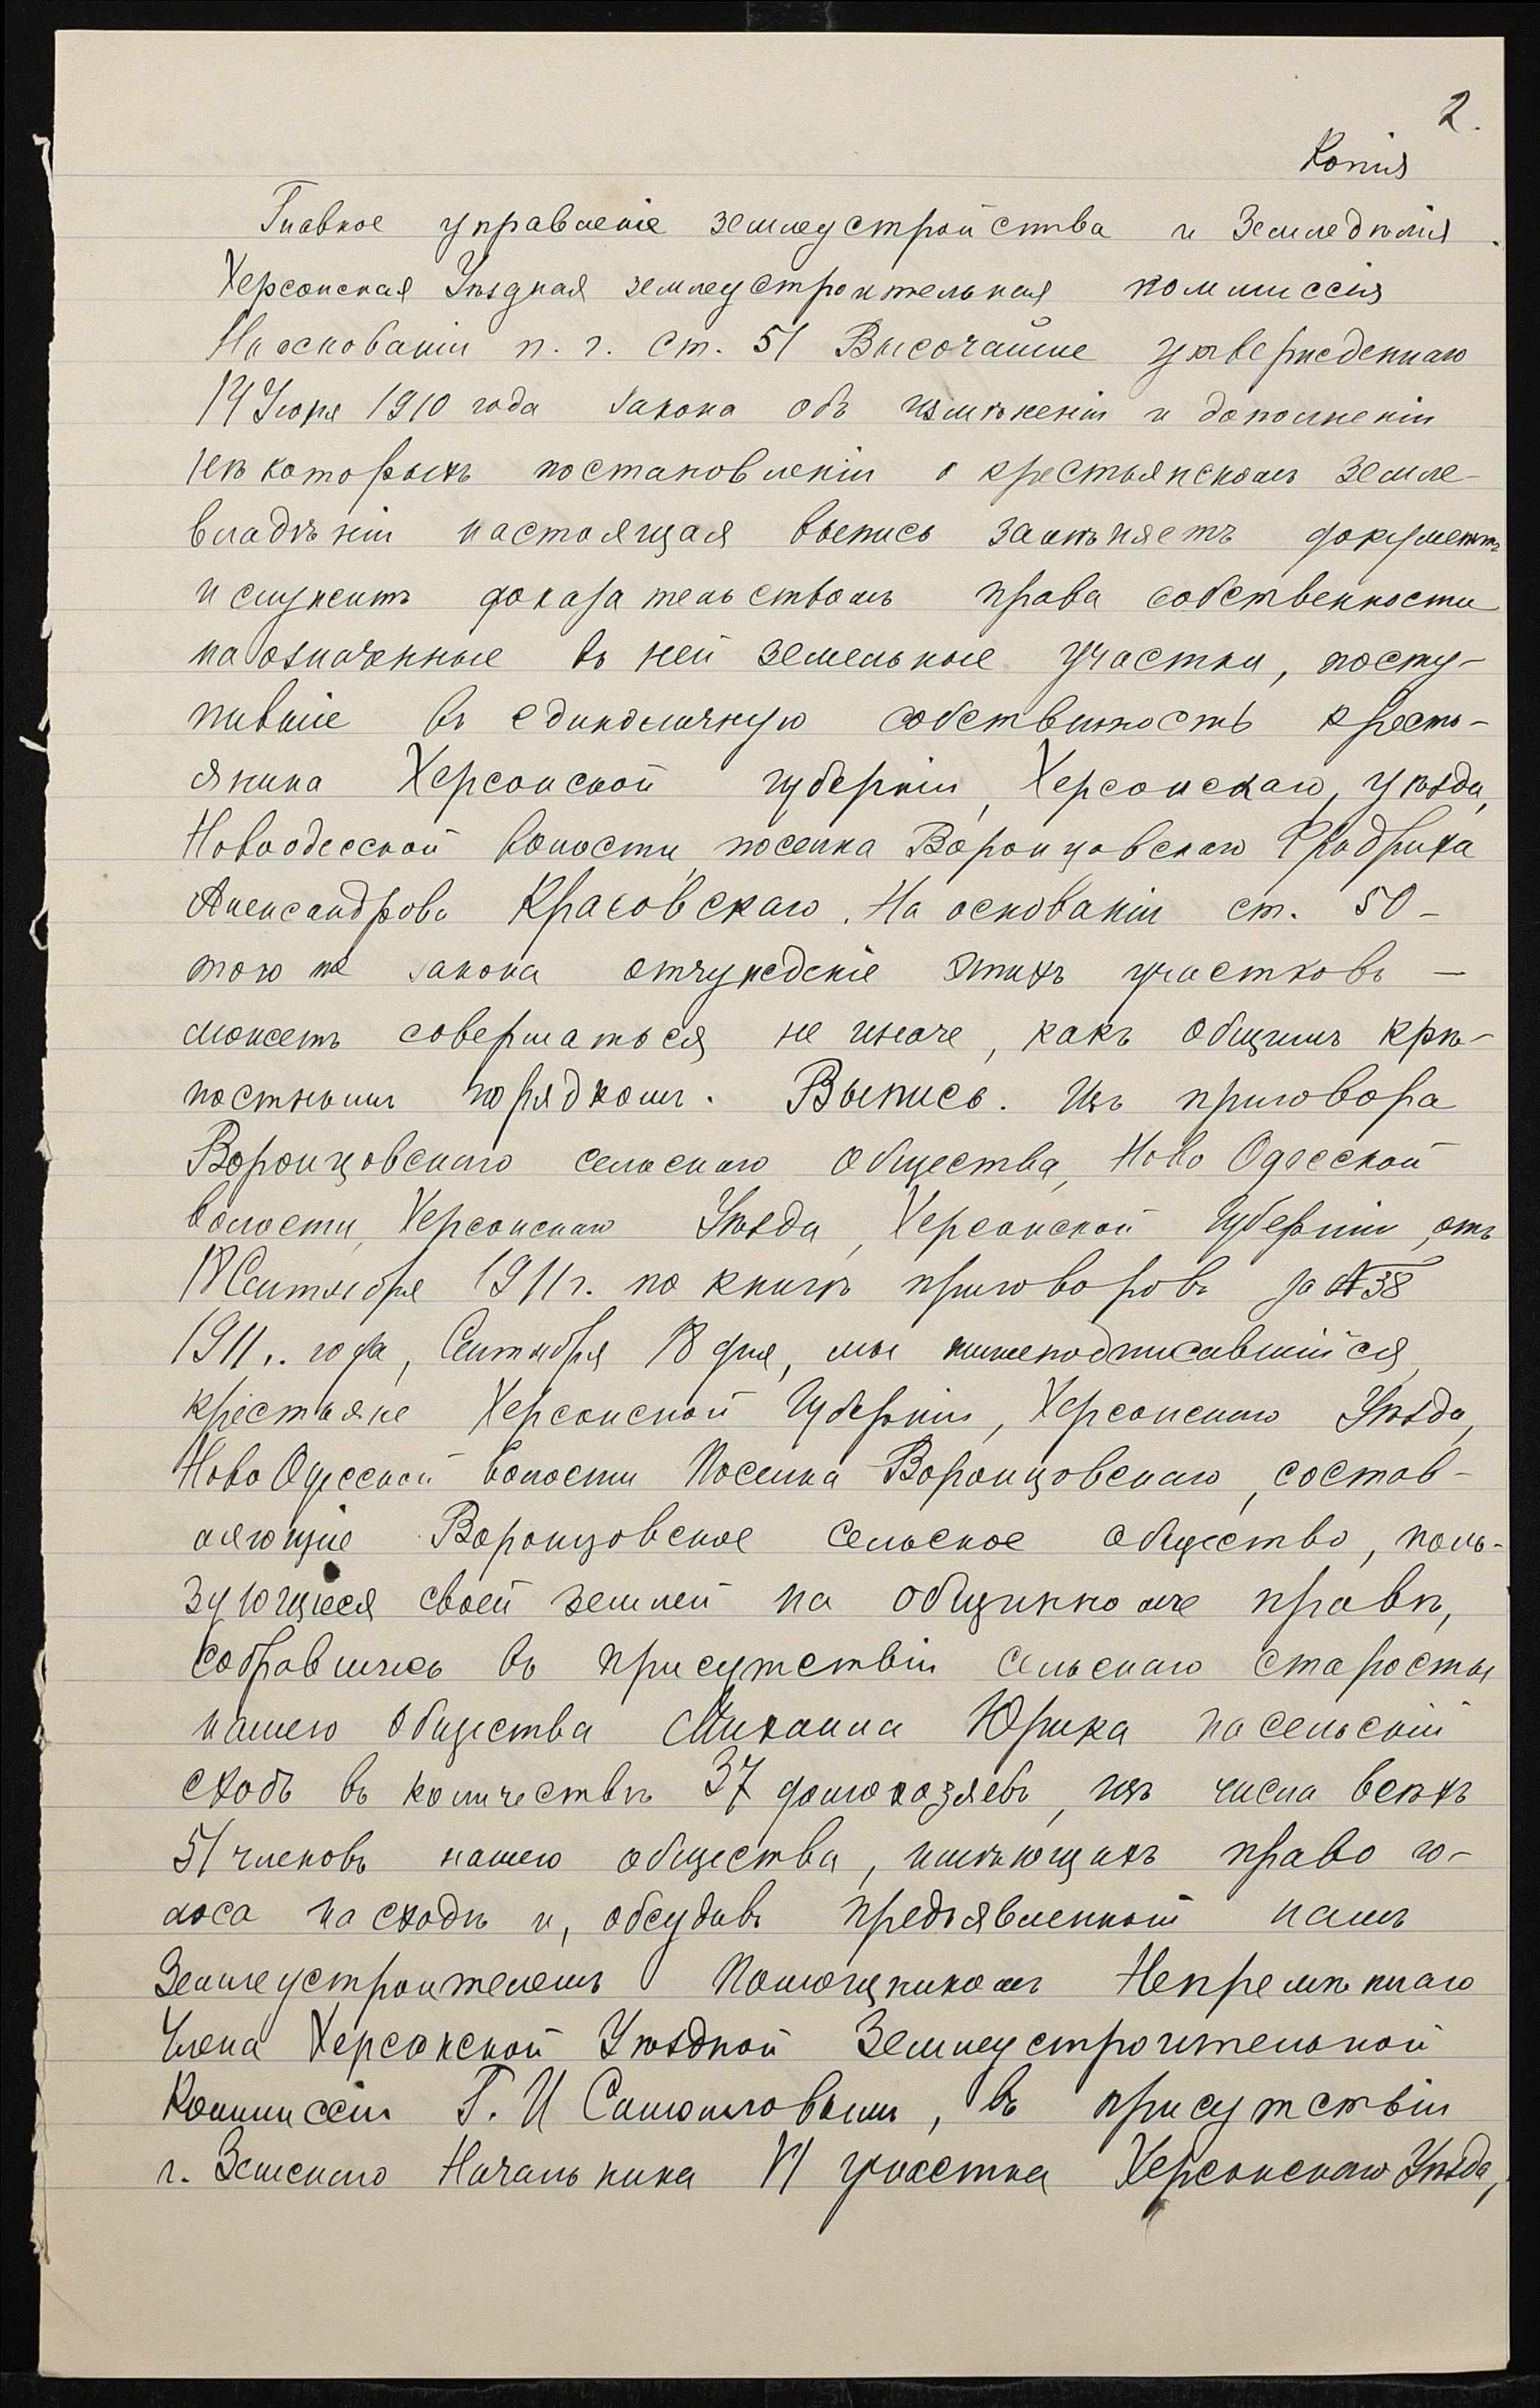 2.
Копія
Главное управленіе землеустройства и Земледѣлія.
Херсонская Уѣздная землеустроительная коммиссія
На основаніи п. г. ст. 51 Высочайше утвержденнаго
14 Іюня 1910 года закона объ измѣненіи и дополненіи
нѣкоторыхъ постановленій о крестьянскомъ земле-
владѣніи настоящая выпись замѣняетъ документъ
и служитъ доказательствомъ права собственности
на означенные въ ней земельные участки, посту-
пившіе въ единоличную собственность кресть-
янина Херсонской губерніи, Херсонскаго, уѣзда,
Новоодесской волости, поселка Воронцовскаго Фридриха
Александрова Красовскаго. На основаніи ст. 50-
того же закона отчужденіе этихъ участковъ —
можетъ совершаться не иначе, какъ общимъ крѣ-
постнымъ порядкомъ. Выпись. Изъ приговора
Воронцовскаго сельскаго общества, Ново Одесской
волости, Херсонскаго Уѣзда, Херсонской Губерніи, отъ
18 Сентября 1911 г. по книгѣ приговоровъ за № 38
1911.. года, Сентября 18 дня, мы нижеподписавшійся,
крестьяне Херсонской Губерніи, Херсонскаго Уѣзда,
Ново Одесской волости Поселка Воронцовскаго, состав-
ляющіе Воронцовское сельское общество, поль-
зующіеся своей землей на общинноме правѣ,
собравшись въ присутствіи сельскаго старосты
нашего общества Михаила Юрика на сельскій
сходъ въ количествѣ 37 домохозяевъ, изъ числа всѣхъ
51 членовъ нашего общества, имѣющихъ право го-
лоса на сходѣ и, обсудивъ предъявленный намъ
Землеустроителемъ Помощникомъ Непремѣннаго
Члена Херсонской Уѣздной Землеустроительной
Коммиссіи Г. И , въ присутствіи
г. Земскаго Начальника VI участка Херсонскаго Уѣзда,